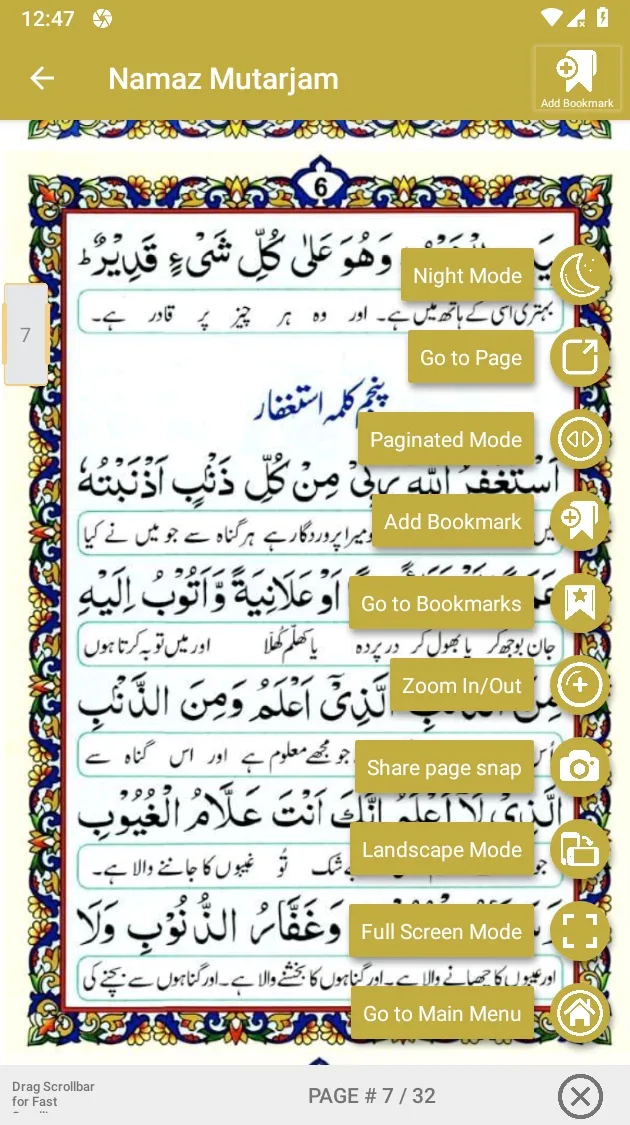 12:47
Namaz Mutarjam
Add Bookmark
6
وَهُوَ عَلٰى كُلِّ شَىْءٍ قَدِيْرٌ ط
Night Mode
بہتری اسی کے ہاتھ میں ہے۔ اور وہ ہر چیز پر قادر ہے۔
7
Go to Page
پنجم کلمہ استغفار
Paginated Mode
اَسْتَغْفِرُ اللّٰهَ رَبِّىْ مِنْ كُلِّ ذَنْۢبٍ اَذْنَبْتُهٗ
Add Bookmark
ومیرا پروردگار ہے ہر گناہ سے جو میں نے کیا
اَوْ عَلَانِيَةً وَّاَتُوْبُ اِلَيْهِ
Go to Bookmarks
جان بوجھ کر یا بھول کر در پردہ یا کھلّم کُھلّا اور میں توبہ کرتا ہوں
الَّذِىْٓ اَعْلَمُ وَمِنَ الذَّنْۢبِ
Zoom In/Out
جو مجھے معلوم ہے اور اس گناہ سے
Share page snap
الَّذِىْ لَآ اَعْلَمُ اِنَّكَ اَنْتَ عَلَّامُ الْغُيُوْبِ
Landscape Mode
جو شک تُو غیبوں کا جاننے والا ہے۔
وَغَفَّارُ الذُّنُوْبِ وَلَا
Full Screen Mode
اور عیبوں کا چھپانے والا ہے۔ اور گناہوں کا بخشنے والا ہے۔ اور گناہوں سے بچنے کی
Go to Main Menu
Drag Scrollbar
for Fast
PAGE # 7 / 32